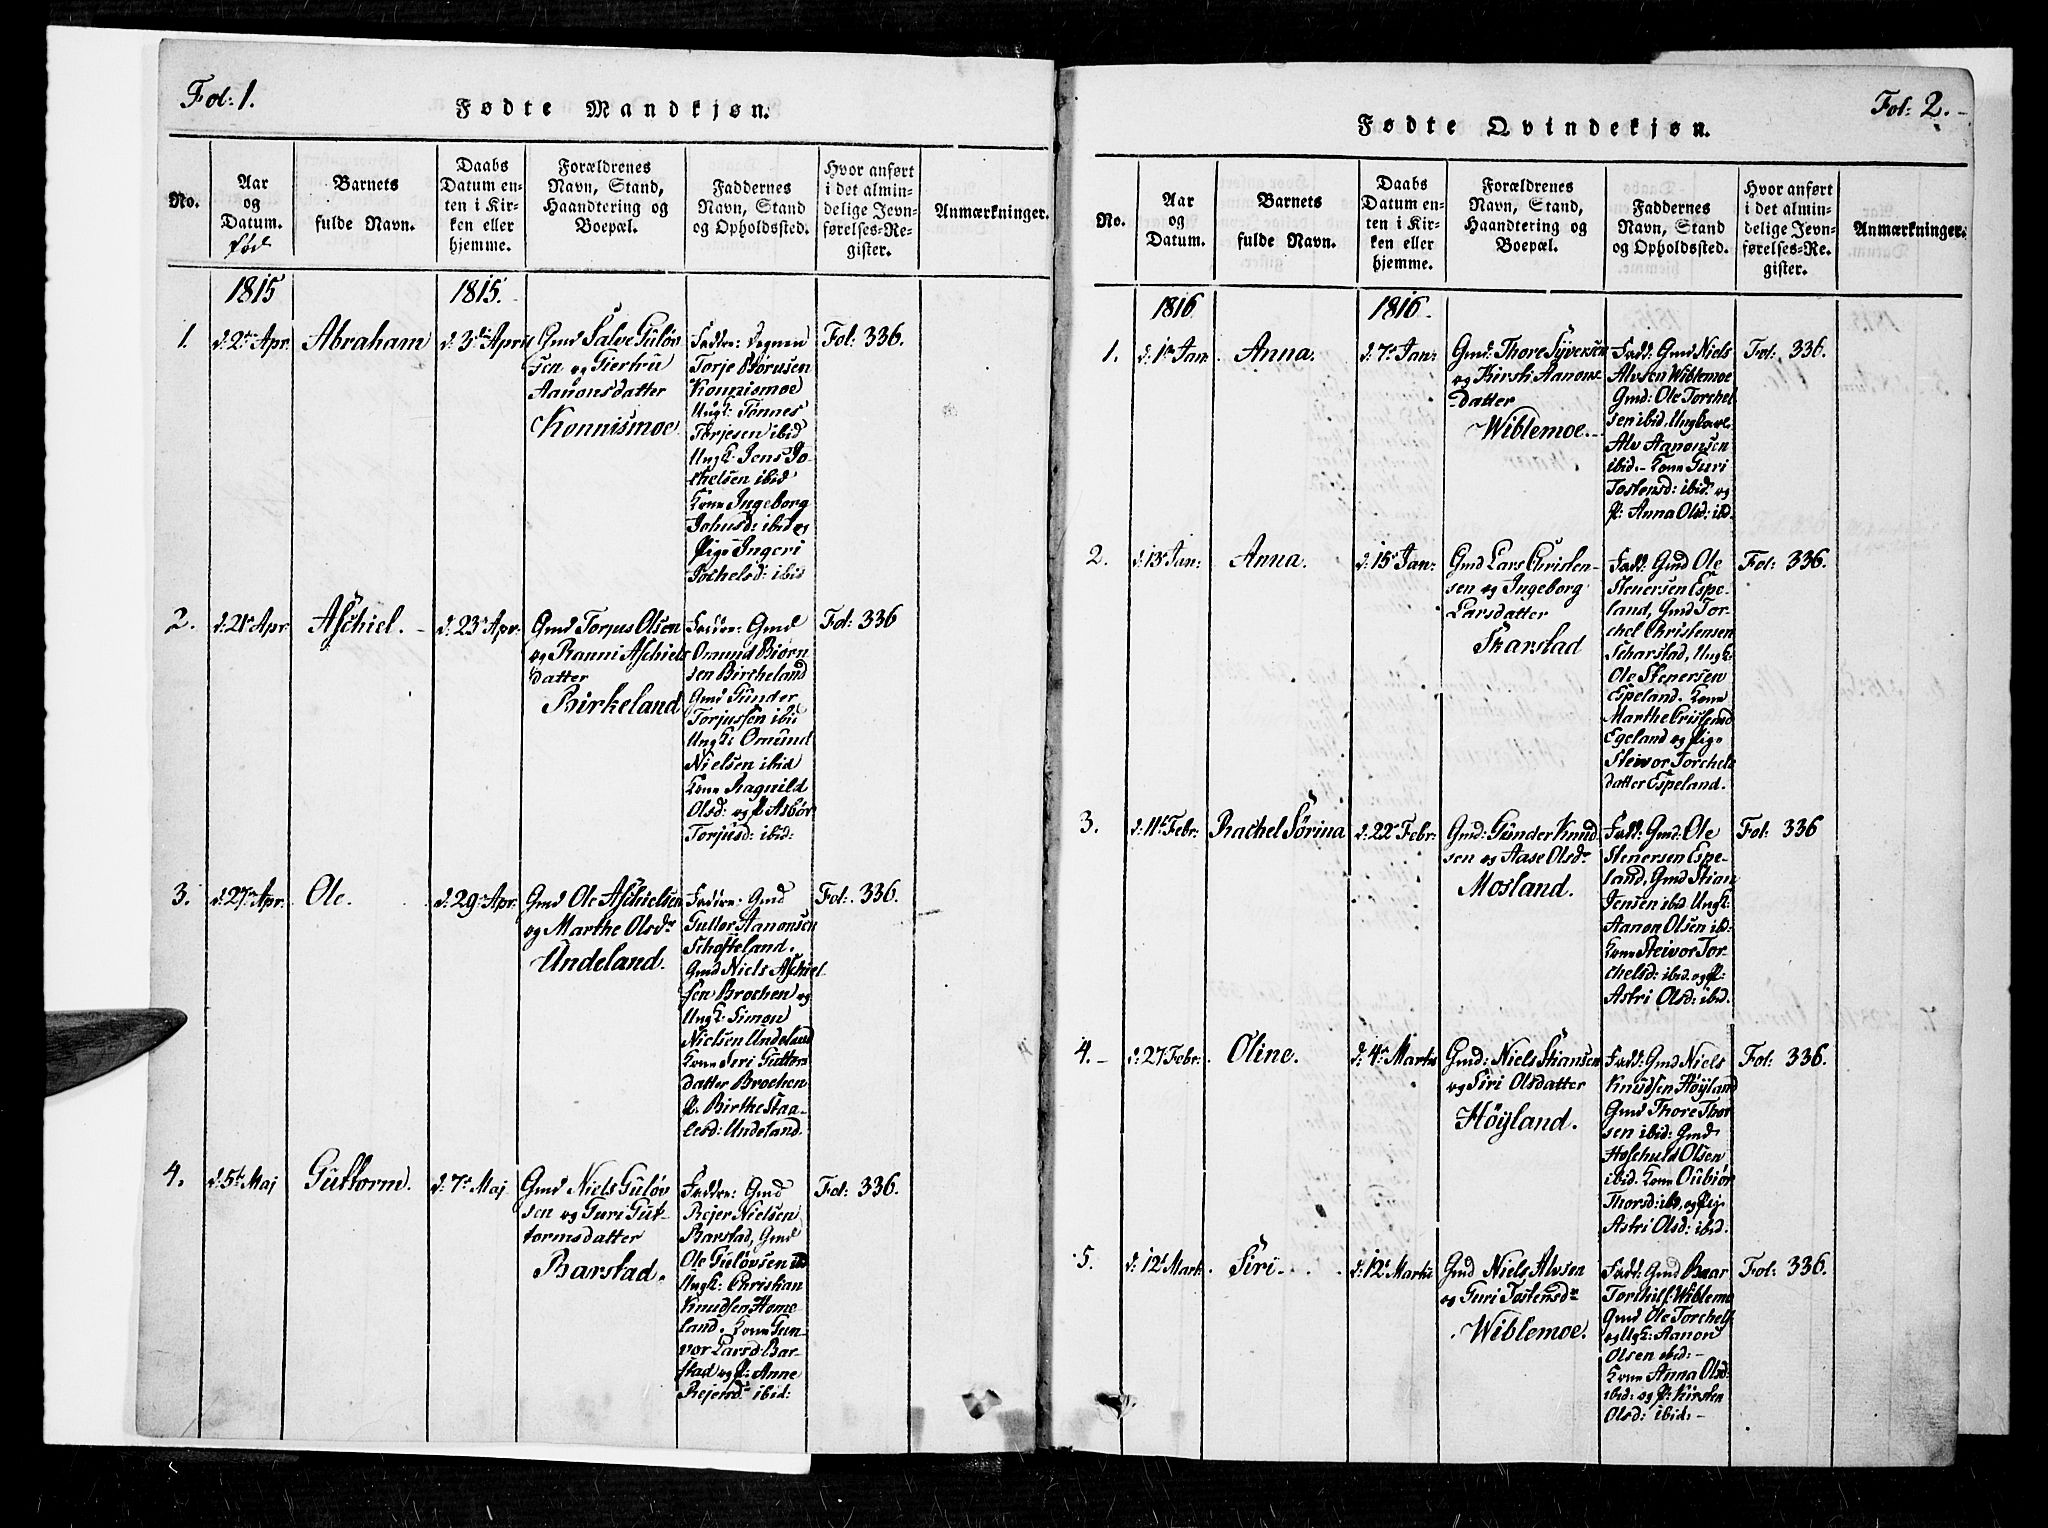 Fol: 1.
Fødte Mandkjøn.
No.
Aar
og
Datum.
fød
Barnets
fulde Navn.
Daabs
Datum en-
ten i Kir-
ken eller
hjemme.
Forældrenes
Navn, Stand,
Haandtering og
Boepæl.
Faddernes
Navn, Stand
og Opholdssted.
Hvor anført
i det almin-
delige Jevn-
førelses-Re-
gister.
Anmærkninger.
1815
1815.
1.
d: 2den Apr
Abraham
d: 3die April
Gmd Salve Guløv
sen og Giertru
Aanonsdatter
Konnismoe
Faddre: Degnen
Torje Børusen
Konnismoe
Ungk: Tønnes
Torjesen ibid
Ungk: Jens Jo-
chelsen ibid
Kone Ingeborg
Johusd: ibid og
Pige Ingeri
Tochelsd: ibid
Fol: 336.
2.
d: 21e Apr
Aschiel. -
d: 23e Apr:
Gmd Torjus Olsen
og Ranni Aschiels
datter
Birkeland
Faddre: Gmd
Omund Biørn
sen Bircheland
Gmd Gunder
Torjussen ibid
Ungk: Omund
Nielsen ibid
Kone Ragnild
Olsd: og P: Asbør
Torjusd: ibid:
Fol: 336
3.
d: 27e Apr:
Ole.
d: 29e Apr:
Gmd Ole Aschielsen
og Marthe Olsdr
Undeland.
Faddre: Gmd
Gulløv Aanonsen
Schofteland.
Gmd Niels Aschiel
sen Brochen og
Ungk: Simon
Nielsen Undeland
Kone Siri Guttorms
datter Brochen
P: Birthe Staa-
lesd: Undeland.
Fol: 336.
4.
d: 5te Maj
Guttorm.
d: 7e Maj
Gmd Niels Guløv
sen og Guri Gut-
tormsdatter
Barstad.
Faddre: Gmd
Rejer Nielsen
Barstad, Gmd
Ole Guløvsen ibd
Ungk: Christian
Knudsen Home-
land. Kone Gun-
vor Larsd: Bar-
stad og P: Anne
Rejersd: ibid:
Fol: 336.
Fol: 2. -
Fødte Qvindekjøn.
No.
Aar
og
Datum.
Barnets
fulde Navn.
Daabs
Datum en-
ten i Kir-
ken eller
hjemme.
Forældrenes
Navn, Stand,
Haandtering og
Boepæl.
Faddernes
Navn, Stand
og Opholdssted.
Hvor anført
i det almin-
delige Jevn-
førelses-Re-
gister.
Anmærkninger.
1816
1816.
1.
d: 1e Jan:
Anna.
d: 7e Jan:
Gmd: Thore Syversen
og Kirsti Aanons
datter
Wiblemoe.
Fadd: Gmd Niels
Alvsen Wiblemoe
Gmd: Ole Torchel
sen ibid. Ungkarl
Alv Aanonsen
ibid. - Kone Guri
Tostensd: ibid: og
P: Anna Olsd: ibd.
Fol: 336.
2.
d: 13e Jan:
Anna.
d: 15e Jan:
Gmd Lars Christen-
sen og Ingeborg
Larsdatter
Skarstad
Fadd: Gmd Ole
Stenersen Espe-
land, Gmd Tor-
chel Christensen
Scharstad, Ungk:
Ole Stenersen
Espeland. Kone
Marthe Cristensd
Egeland og Pige
Steivor Torchels
datter Espeland.
Fol: 336.
3.
d: 11te Febr:
Rachel Sørina
d: 22e Febr:
Gmd: Gunder Knud
sen og Aase Olsdr
Mosland.
Fadd: Gmd: Ole
Stenersen Espe-
land: Gmd Stian
Jensen ibid Ungk:
Aanon Olsen ibd.
Kone Steivor Tor-
chelsd: ibid. og P:
Astri Olsd: ibid.
Fol: 336
4. -
d: 27 Febr:
Oline.
d: 4e Martii
Gmd: Niels Stiansen
og Siri Olsdatter
Høyland.
Fadd: Gmd Niels
Knudsen Høyland
Gmd Thore Thor
sen ibid: Gmd
Hoschuld Olsen
ibid. Kone Oubiør
Thorsd: ibd. og Pig.
Astri Olsd: ibd.
Fol: 336.
5.
d: 12te Mart:
Siri.
d: 12te Martii
Gmd Niels Alvsen
og Guri Tostensdr
Wiblemoe.
Fadd: Gmd Baar
Torkills: Wiblemo
Gmd Ole Torchels
og Ugk: Aanon
Olsen ibid: -
Kone Anna Olsd:
ibid: og P: Kirsten
Olsd: ibid: -
Fol: 336.